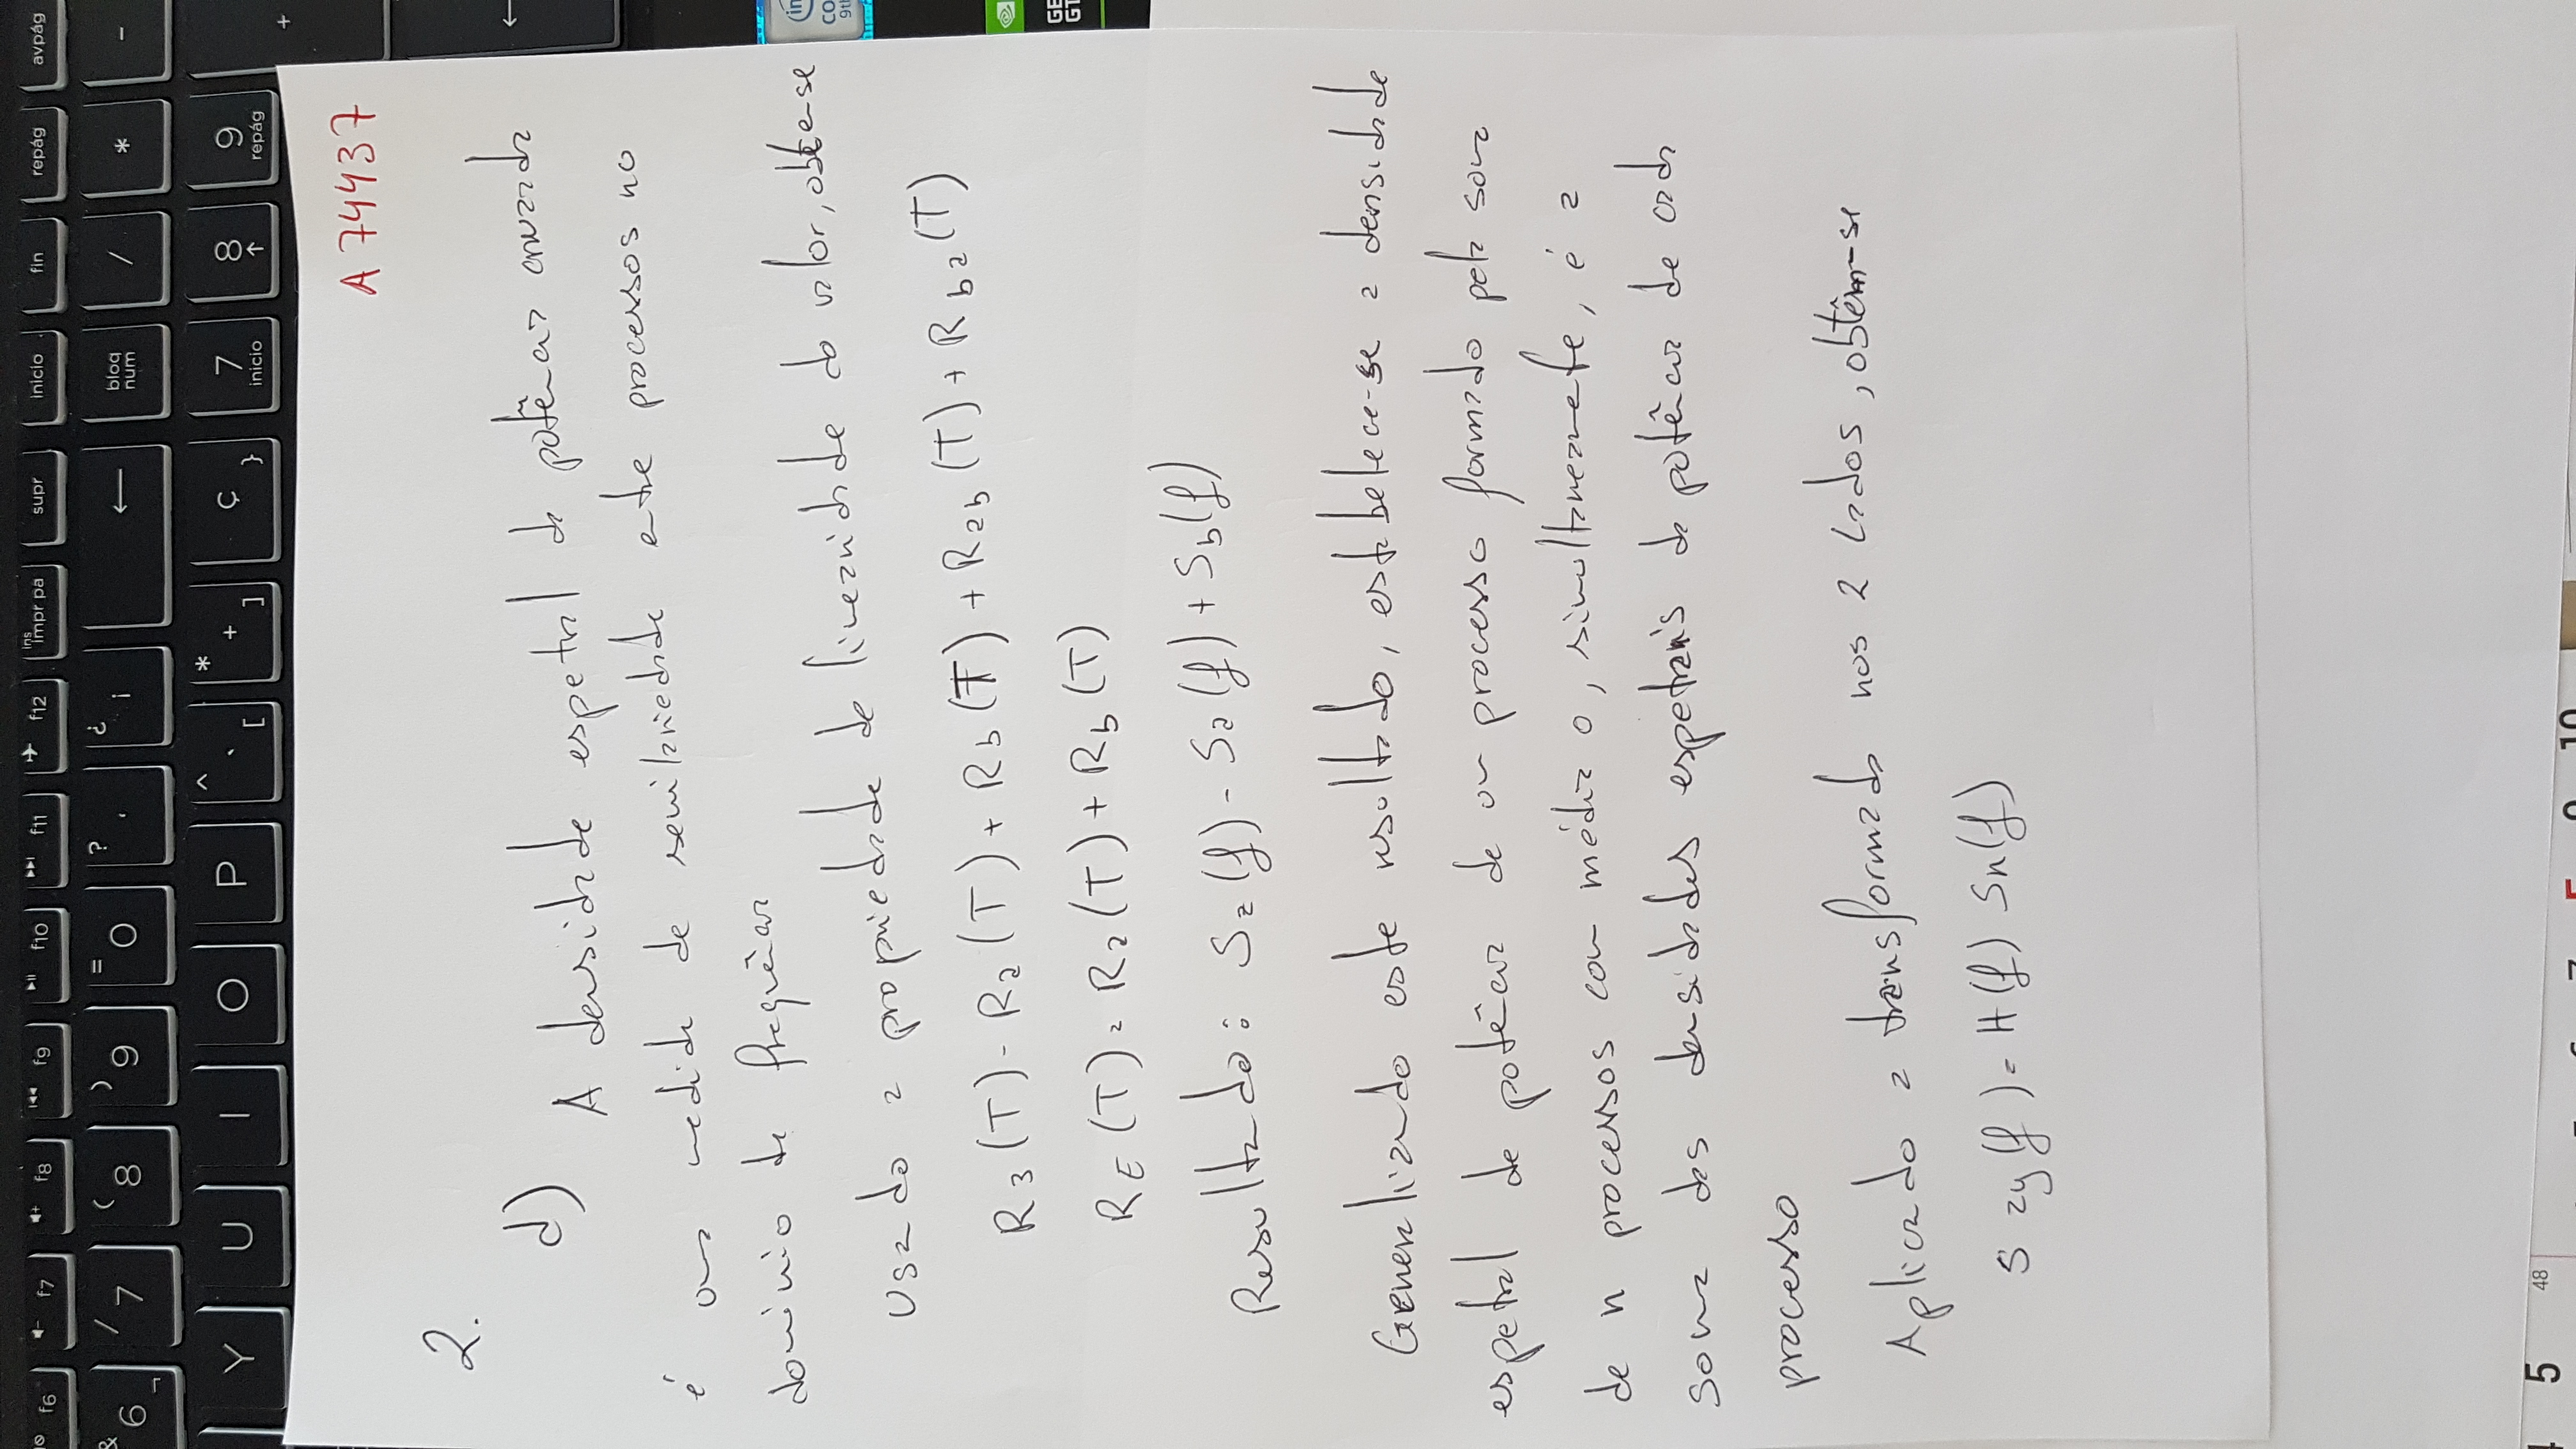 f6 f7 f8 f9 f10 f11 f12 ins impr pa supr inicio fin repág avpág
& 6 ¬ / 7 ( 8 ) 9 = 0 ? ' ¿ ¡ ← bloq num / * -
Y U I O P ^ ` [ * + ] ç } 7 inicio 8 ↑ 9 repág +
A 74437
2.
d) A densidade espetral de potência cruzada
é uma medida de semilariedade entre processos no
dominio da frequência
Usando a propriedade de linearidade do valor, obtem-se
R3(T) - Ra(T) + Rb(T) + Rab(T) + Rba(T)
RE(T) = Ra(T) + Rb(T)
Resultado: Sz(f) - Sa(f) + Sb(f)
Generalizando este resultado, estabelece-se a densidade
espetral de potência de um processo formado pela soma
de n processos com média 0, simultaneamente, é a
soma das densidades espetrais de potência de cada
processo
Aplicando a transformada nos 2 lados, obtêm-se
S zy(f) = H(f) Sn(f)
CO
9th
GE
GT
5 48
10